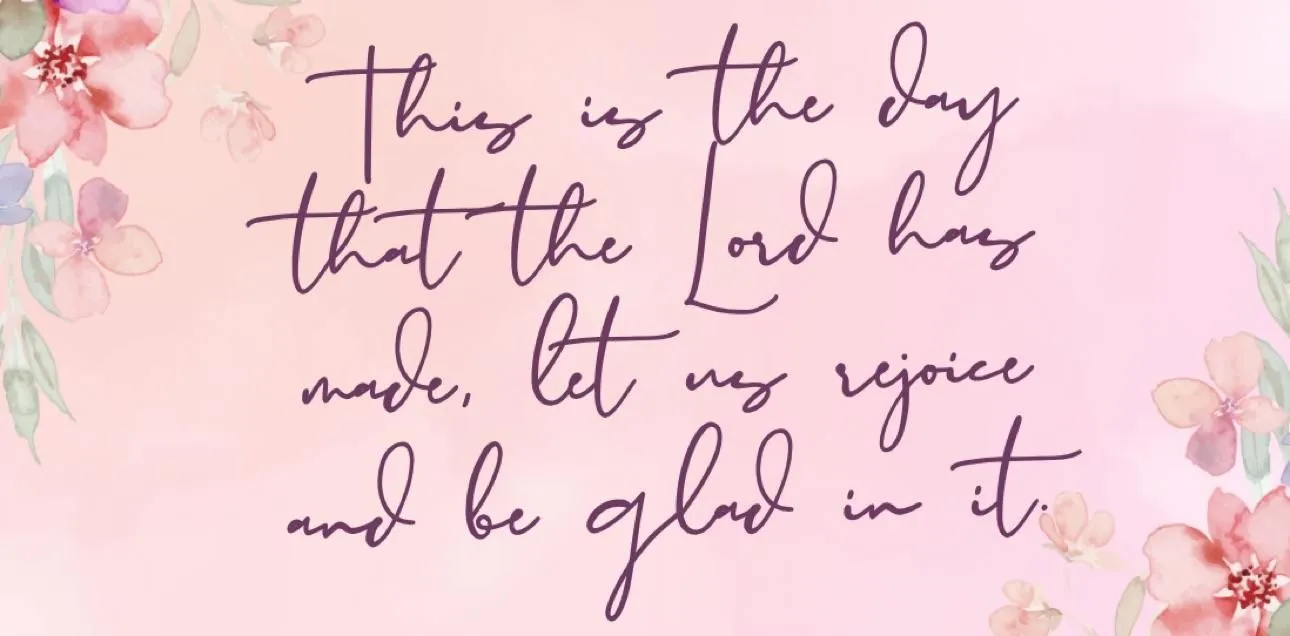 This is the day
that the Lord has
made, let us rejoice
and be glad in it.